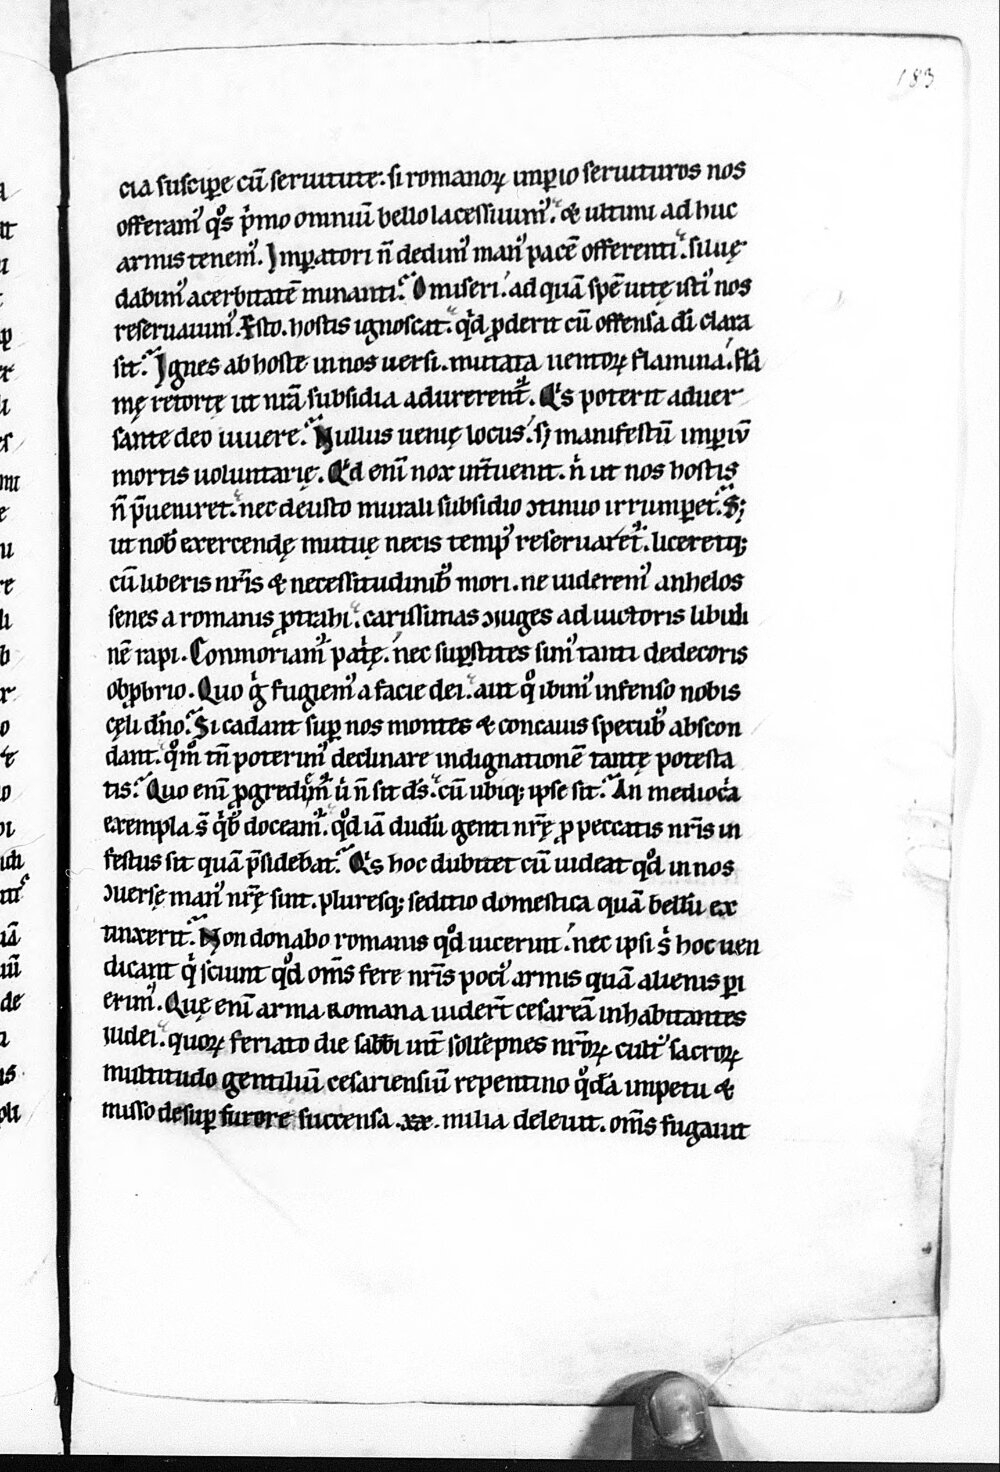 183
cia suscipe cū seruitute. si romanoꝝ imꝑio seruituros nos
offeram᷒ qͦs pͥmo omniū bello lacessiuim᷒. & ultimi ad huc
armis tenem᷒. Imꝑatori n̄ dedim᷒ man᷒ pacē offerenti. siuię
dabim᷒ acerbitatē minanti. O miseri. ad quā spē uitę isti᷒ nos
reseruauim᷒. Esto. hostis ignoscat. qͥd ꝓderit cū offensa dī clara
sit. Ignes ab hoste in nos uersi. mutata uentoꝝ flamina. flā
mę retortę ut nr̄a subsidia adurerent᷑. Qͥs poterit aduer
sante deo uiuere. Nullus uenię locus. s; manifestū imꝑiū
mortis uoluntarię. Qͥd enī nox int̄uenit. nͥ ut nos hostis
n̄ p̄ueniret. nec deusto murali subsidio ↄtinuo irrumꝑet. S;
ut nob̄ exercendę mutuę necis temp᷒ reseruaret᷑. liceretq;
cū liberis nr̄is & necessitudinib᷒ mori. ne uiderem᷒ anhelos
senes a romanis ꝓtrahi. carissimas ↄiuges ad uictoris libidi
nē rapi. Conmoriam᷒ patͥę. nec suꝑstites sim᷒ tanti dedecoris
obꝓbrio. Quo gͥ fugiem᷒ a facie dei. aut qͦ ibim᷒ infenso nobis
cęli dn̄o. Si cadant suꝑ nos montes & concauis specub᷒ abscon
dant. qͦm̄ tn̄ poterim᷒ declinare indignationē tantę potesta
tis. Quo enī ꝓgredim᷑ uͥ n̄ sit ds̄. cū ubiq; ipse sit. An mediocͥa
exempla s̄ qͥb᷒ doceam᷑. qͦd iā dudū genti nr̄ę ꝓ peccatis nr̄is in
festus sit quā p̄sidebat. Qͥs hoc dubitet cū uideat qͦd in nos
ↄuersę man᷒ nr̄ę sint. pluresq; seditio domestica quā bellū ex
tinxerit. Non donabo romanis qͦd uicerint. nec ipsi sͥ hoc uen
dicant qͥ sciunt qͦd om̄s fere nr̄is poci᷒ armis quā alienis ꝑi
erim᷒. Quę enī arma Romana uider̄t cesareā inhabitantes
iudei. quoꝝ feriato die sabb̄i int̄ sollēpnes nr̄oꝝ cult᷒ sacroꝝ
multitudo gentiliū cesariensiū repentino qͦdā impetu &
misso desuꝑ furore succensa .xx. milia deleuit. om̄s fugauit